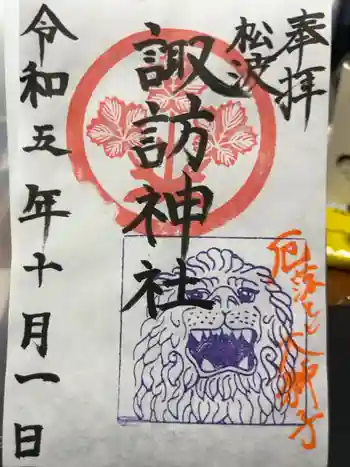 奉拝
松波
諏訪神社
厄落とし大獅子
令和五年十月一日